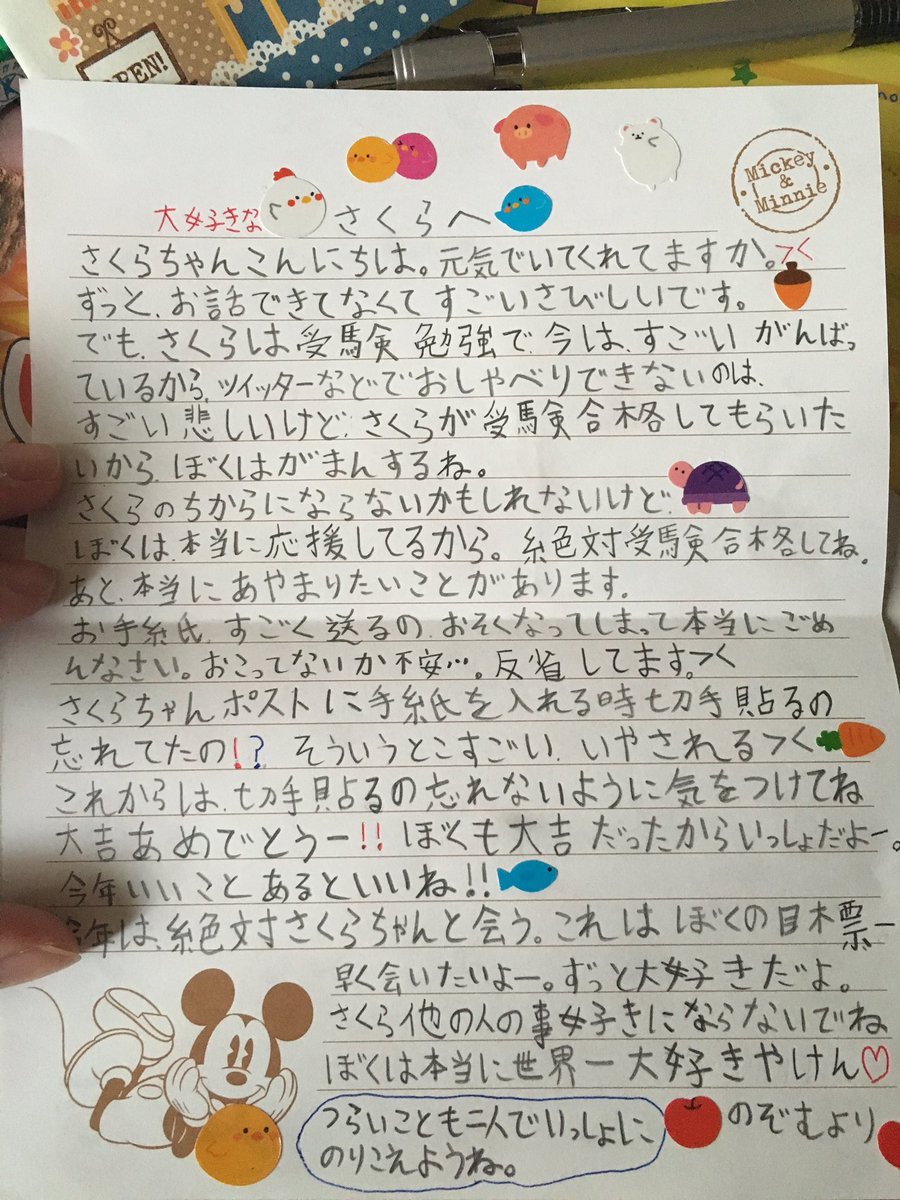 OPEN!
Mickey
&
Minnie
大好きな さくらへ
さくらちゃんこんにちは。元気でいてくれてますか。つく
ずっと、お話できてなくてすごいさびしいです。
でも、さくらは受験勉強で今は、すごいがんばっ
ているから、ツイッターなどでおしゃべりできないのは、
すごい悲しいけど、さくらが受験合格してもらいた
いから、ぼくはがまんするね。
さくらのちからにならないかもしれないけど、
ぼくは、本当に応援してるから。絶対受験合格してね。
あと、本当にあやまりたいことがあります。
お手紙、すごく送るの、おそくなってしまって本当にごめ
んなさい。おこってないか不安…。反省してます。つく
さくらちゃんポストに手紙を入れる時切手貼るの
忘れてたの!? そういうとこすごい、いやされるつく
これからは、切手貼るの忘れないように気をつけてね
大吉おめでとうー!! ぼくも大吉だったからいっしょだよー。
今年いいことあるといいね!!
今年は、絶対さくらちゃんと会う。これはぼくの目標ー
早く会いたいよー。ずっと大好きだよ。
さくら他の人の事好きにならないでね
ぼくは本当に世界一大好きやけん♡
つらいことも二人でいっしょに
のりこえようね。
のぞむより